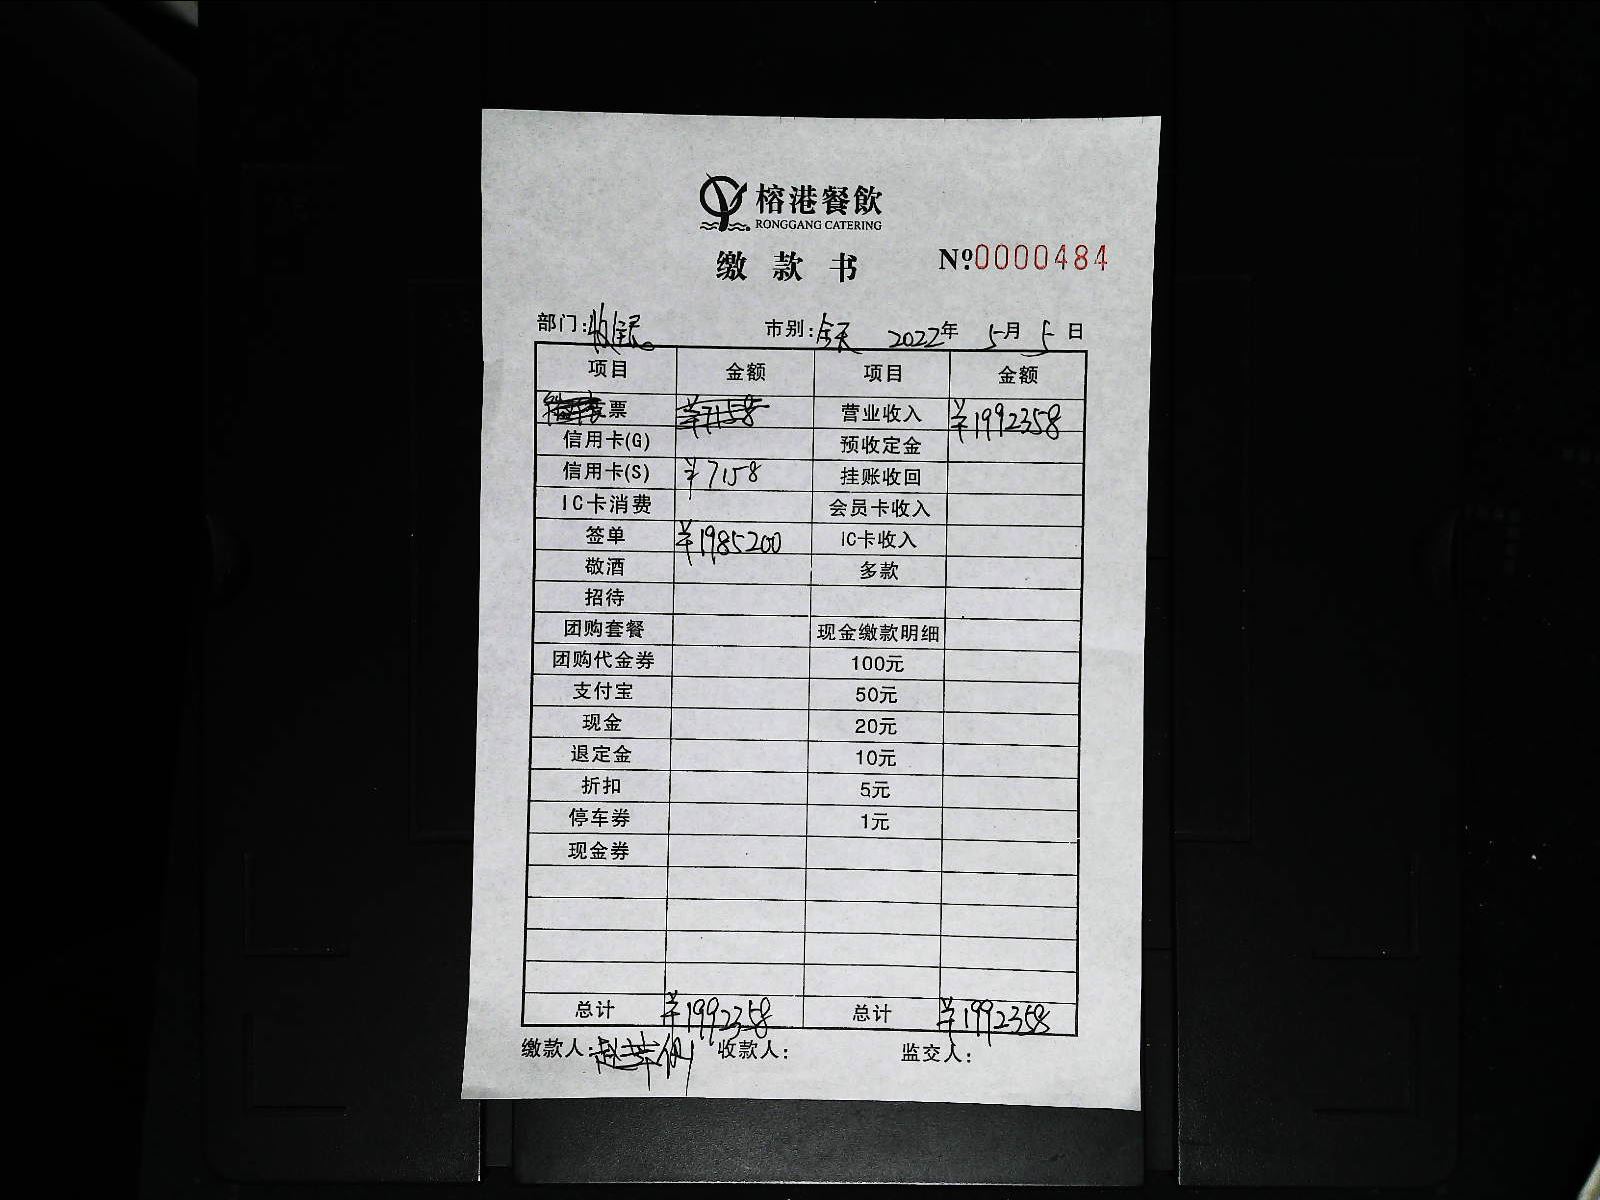 榕港餐飲
RONGGANG CATERING
缴款书 Nº:0000484
部门:收银 市别:全天 2022年 5月 5日
项目 金额 项目 金额
票 ¥7158 营业收入 ¥1992358
信用卡(G) 预收定金
信用卡(S) ¥7158 挂账收回
IC卡消费 会员卡收入
签单 ¥1985200 IC卡收入
敬酒 多款
招待
团购套餐 现金缴款明细
团购代金券 100元
支付宝 50元
现金 20元
退定金 10元
折扣 5元
停车券 1元
现金券
总计 ¥1992358 总计 ¥1992358
缴款人: 收款人: 监交人: